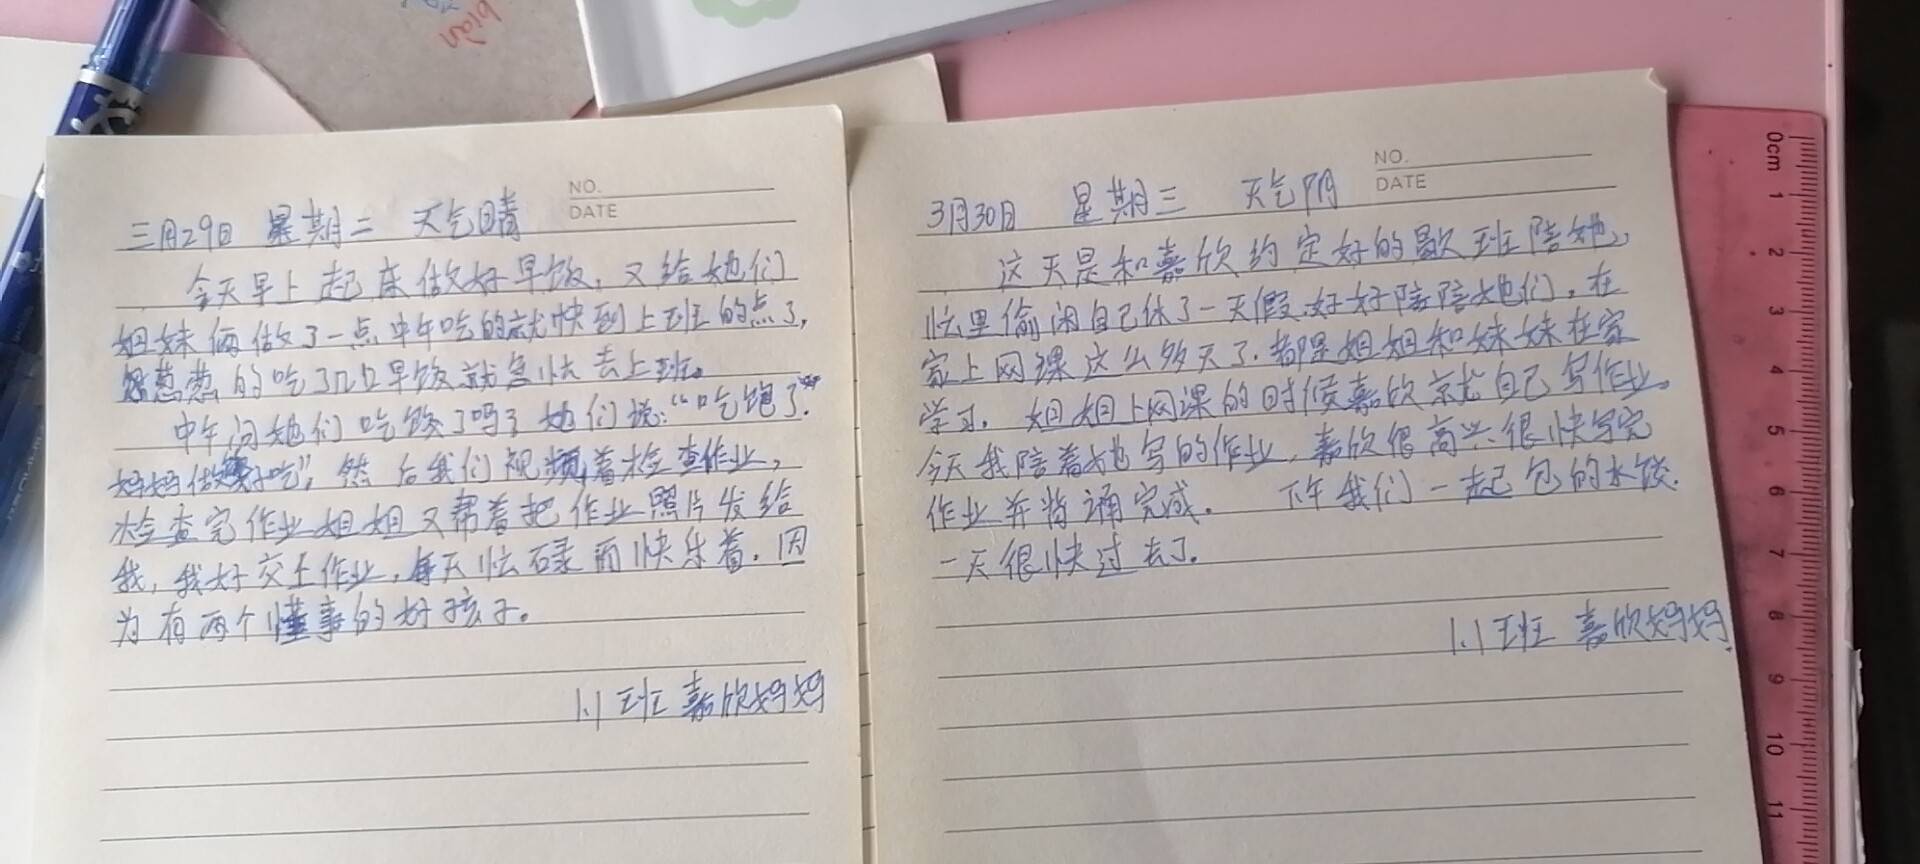 biàn
NO.
DATE
三月29日 星期二 天气晴
今天早上起床做好早饭，又给她们
姐妹俩做了一点中午吃的就快到上班的点了，
匆忙的吃了几口早饭就急忙去上班。
中午问她们吃饭了吗？她们说：“吃饱了”
妈妈做好吃”，然后我们视频着检查作业，
检查完作业姐姐又帮着把作业照片发给
我，我好交上作业，每天忙碌而快乐着．因
为有两个懂事的好孩子。
1.1班 嘉欣妈妈
NO.
DATE
3月30日 星期三 天气阴
这天是和嘉欣约定好的歇班陪她，
忙里偷闲自己休了一天假．好好陪陪她们，在
家上网课这么多天了．都是姐姐和妹妹在家
学习．姐姐上网课的时候嘉欣就自己写作业。
今天我陪着她写的作业，嘉欣很高兴很快写完
作业并背诵完成．下午我们一起包的水饺．
一天很快过去了．
1.1班 嘉欣妈妈
0cm
1
2
3
4
5
6
7
8
9
10
11